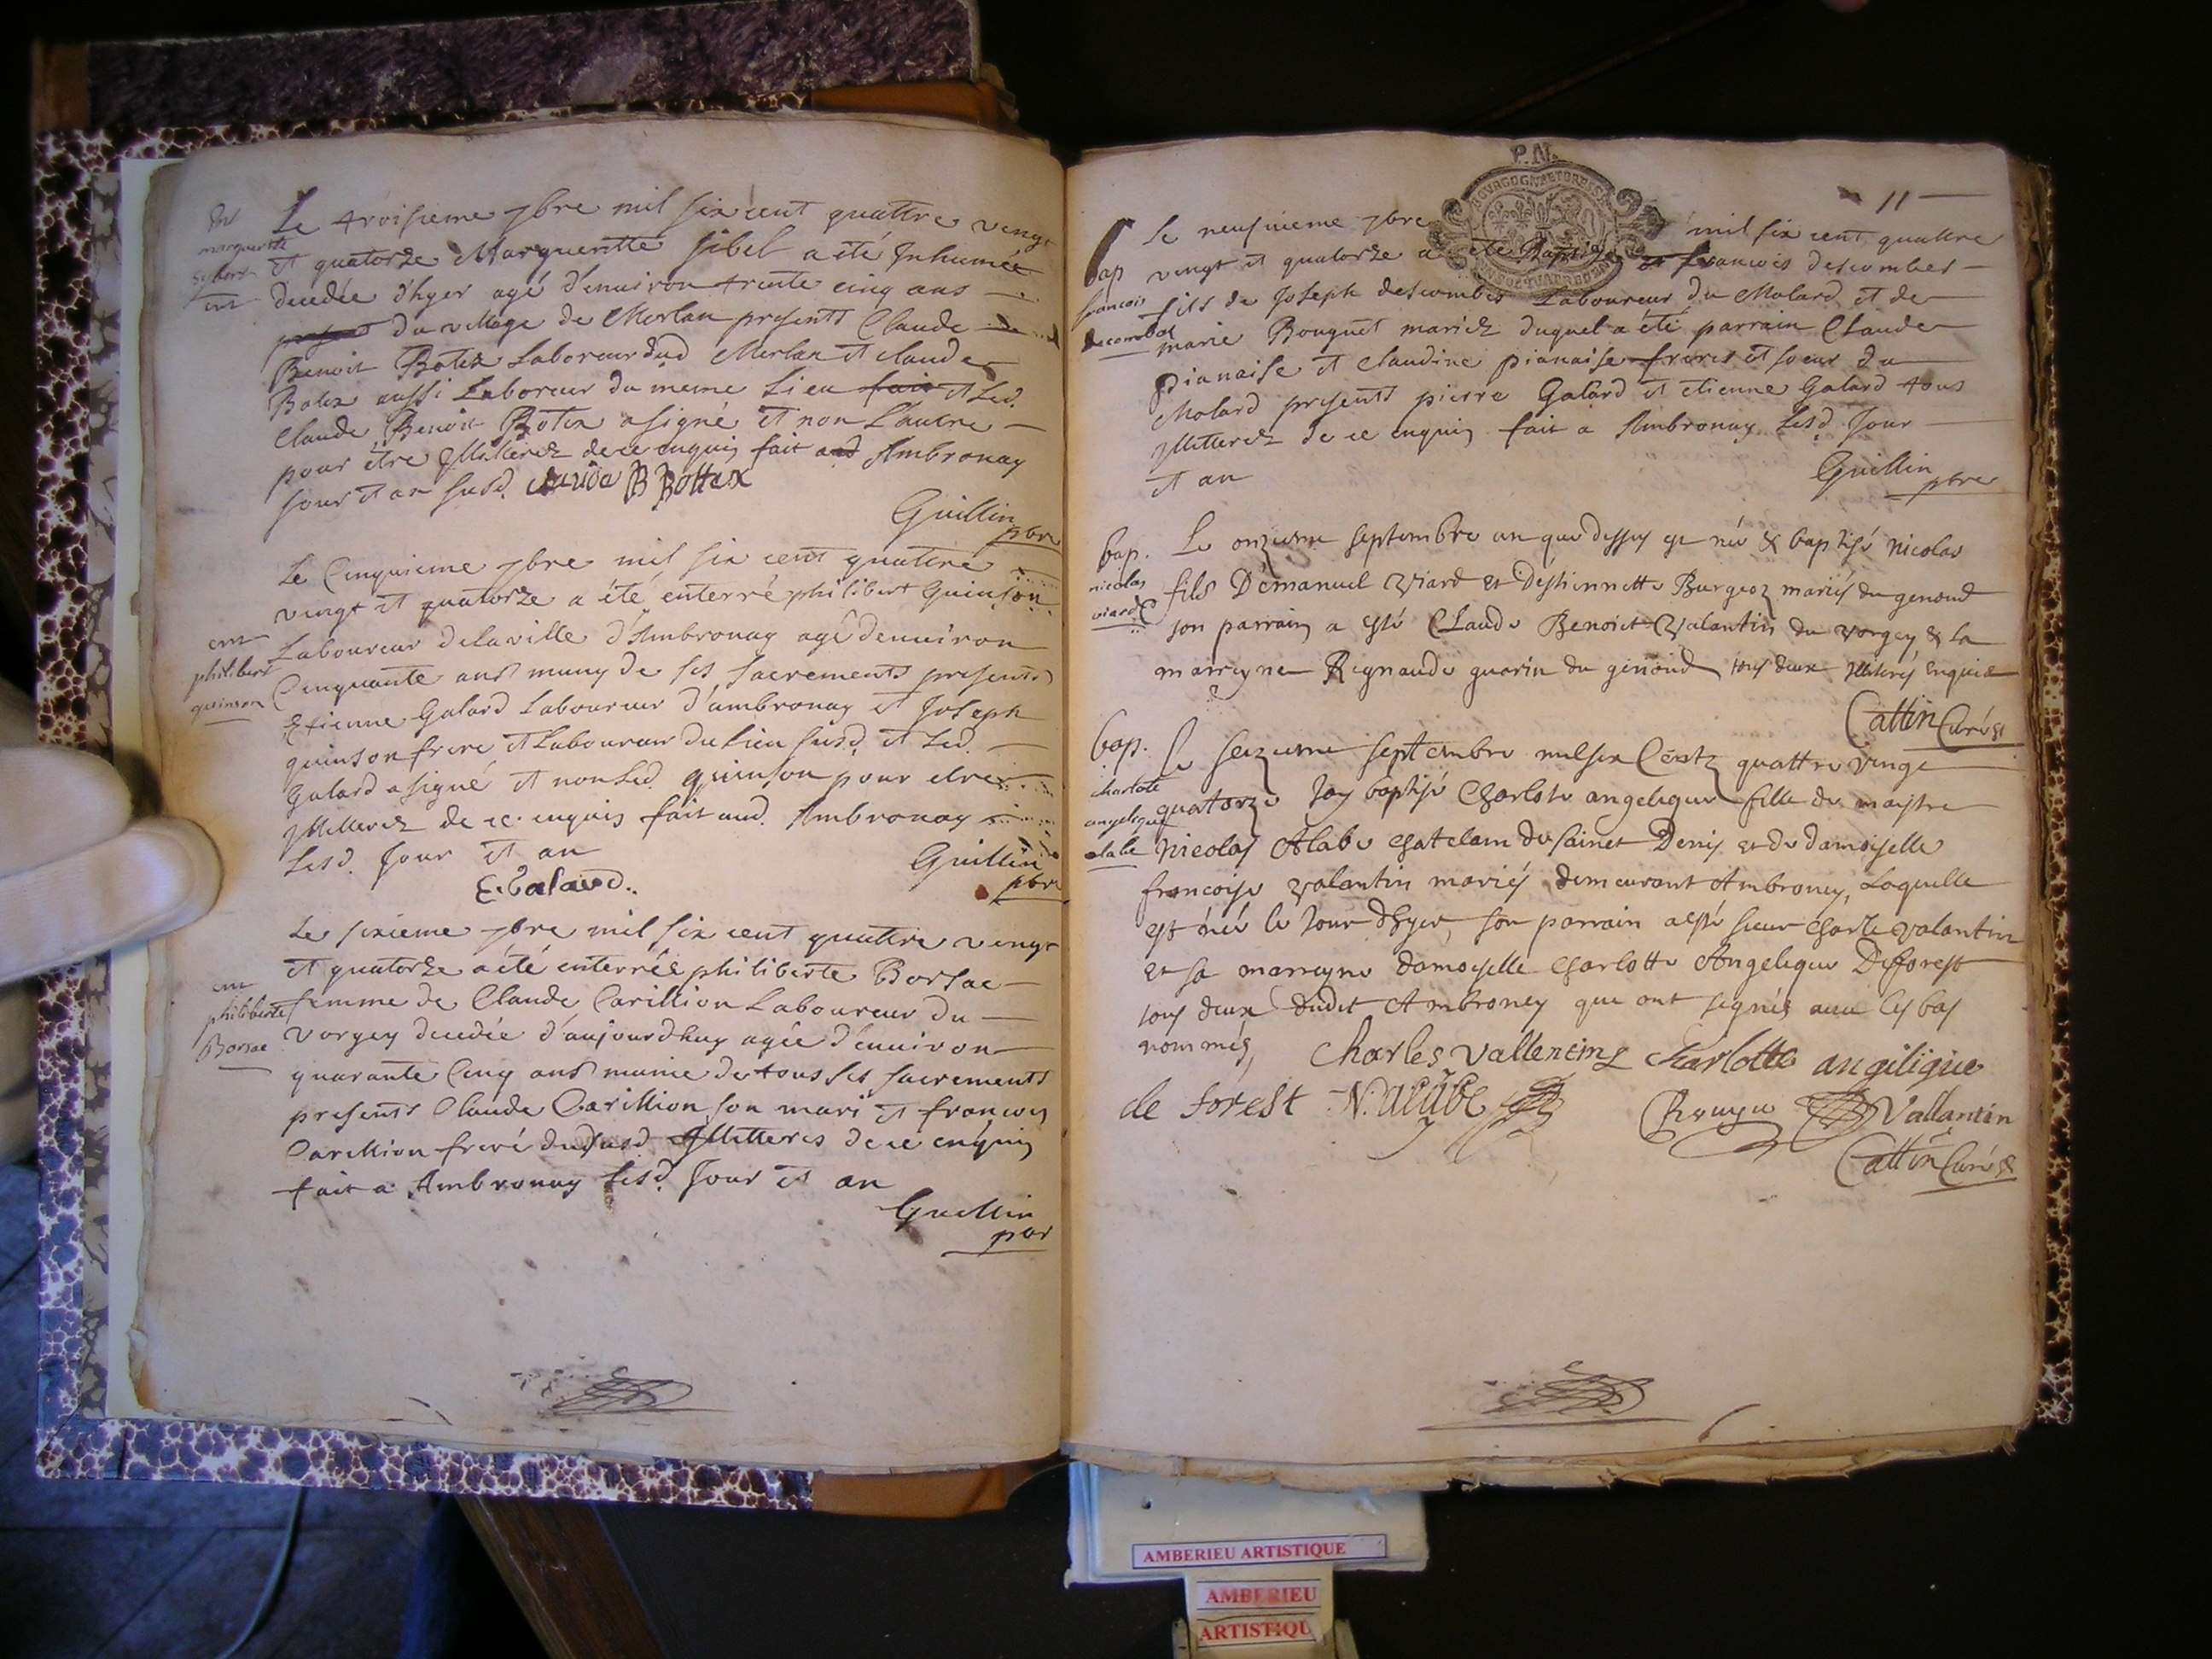 Le troisieme 7bre mil six cent quattre vingt
et quatorze Margueritte sibel a eté Inhumée
decedée d'hyer agé d'enuiron trente cinq ans
du village de Merlan presents Claude
Benoit Botex Laboreur dud Merlan et claude
Botex aussi Laboreur du meme Lieu et Led.
Claude Benoit Botex a signé et non L'autre
pour être Illitterez de ce enquis fait aud Ambronay
Jour et an susd. claude B Bottex
Guillin
pbre
ent
philibert
quinson
Le Cinquieme 7bre mil six cent quattre
vingt et quatorze a été enterré philibert Quinson
Laboureur de la ville d'Ambronay agé d'enuiron
Cinquante ans muny de ses sacrements presents
Etienne Galard Laboureur d'ambronay et Joseph
quinson frere et Laboureur du Lieu susd. et Led.
Galard a signé et non Led. quinson pour etre
Illitterez de ce enquis fait aud. Ambronay
Lesd. Jour et an
Guillin
pbre
E. Galard
ent
philiberte
Borsae
Le sixieme 7bre mil six cent quattre vingt
et quatorze a été enterrée philiberte Borsae
femme de Claude Carillion Laboureur du
Vorgey decedée d'aujourdhuy agée d'enuiron
quarante Cinq ans munie de tous ses sacrements
presents Claude Carillion son mari et francois
Carillion frere dudsusd Illitteres de ce enquis
fait a Ambronay Lesd. Jour et an
Guillin
pbr
P.N.
11
bap
francois
descombes
Le neufuieme 7bre mil six cent quattre
vingt et quatorze a eté Baptizé francois descombes
fils de Joseph descombes Laboureur du Molard et de
marie Bouguet mariez duquel a été parrain Claude
pianaise et claudine pianaise freres et soeur du
Molard presents pierre Galard et etienne Galard tous
Illitterez de ce enquis fait a Ambronay Lesd. Jour
et an
Guillin
pbre
bap.
nicolas
viard
Le onzieme septembre an que dessus est né & baptisé nicolas
fils D'emanuel Viard et D'estiennette Burgeoz mariés du genoud
son parrain a esté Claude Benoict Valantin du vorgey, & la
marreyne Reynaude guarin du genoud tous deux Illiterés enquis
Cattin Curé
bap.
charlote
angelique
alabe
Le seizieme septembre mil six Centz quattre vingt
quatorze Jay baptisé Charlote angelique fille de maistre
Nicolas Alabe chatelain de sainct Denis et de damoiselle
francoise valantin mariés demeurant Ambroney, Laquelle
est née le Jour d'hyer, son parrain a esté sieur charle valantin
et sa marreyne damoiselle charlotte Angelique Deforest
tous deux dudit Ambroney qui ont signés auec les bas
nommés, Charles vallentin charlotte angelique
de forest N. alabe Vallantin
Cattin Curé
AMBERIEU ARTISTIQUE
AMBERIEU
ARTISTIQU